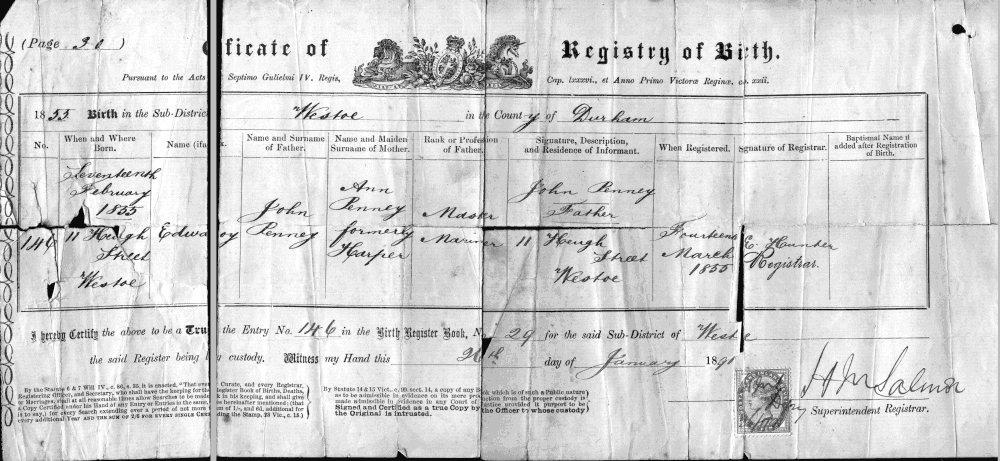 (Page 30)
ificate of Registry of Birth.
Pursuant to the Acts Septimo Gulielmi IV. Regis, Cap. lxxxvi., et Anno Primo Victoræ Reginæ, ca. xxii.
1855 Birth in the Sub-District Westoe in the County of Durham
No.
When and Where Born.
Name (if a
Name and Surname of Father.
Name and Maiden Surname of Mother.
Rank or Profession of Father.
Signature, Description, and Residence of Informant.
When Registered.
Signature of Registrar.
Baptismal Name if added after Registration of Birth.
146
Seventeenth
February
1855
11 Heugh
Street
Westoe
Edwa oy
John
Penney
Ann
Penney
formerly
Harper
Master
Mariner
John Penney
Father
11 Heugh
Street
Westoe
Fourteenth
March
1855
E. Hunter
Registrar.
I hereby Certify the above to be a True the Entry No. 146 in the Birth Register Book, N 29 for the said Sub-District of Westoe
the said Register being custody. Witness my Hand this 26th day of January 1891
By the Statute 6 & 7 Will IV., c. 86, s. 35, it is enacted, "That every Curate, and every Registrar,
Registering Officer, and Secretary, shall have the keeping for the Register Book of Births, Deaths,
or Marriages, shall at all reasonable times allow Searches to be made in his keeping, and shall give
a Copy Certified under his Hand of any Entry or Entries in the same, hereafter mentioned; (that
is to say), for every Search extending over a period of not more of 1/-, and 6d. additional for
every additional Year AND THE SUM OF 2/6 FOR EVERY SINGLE CER the Stamp, 23 Vic., c. 15)
By Statute 14 & 15 Vict., c. 99, sect. 14, a copy of any Book which is of such a Public nature
as to be admissible in evidence on its mere production from the proper custody is
made admissible in evidence in any Court of provided it purport to be
Signed and Certified as a true Copy by the Officer to whose custody
the Original is intrusted.
Superintendent Registrar.